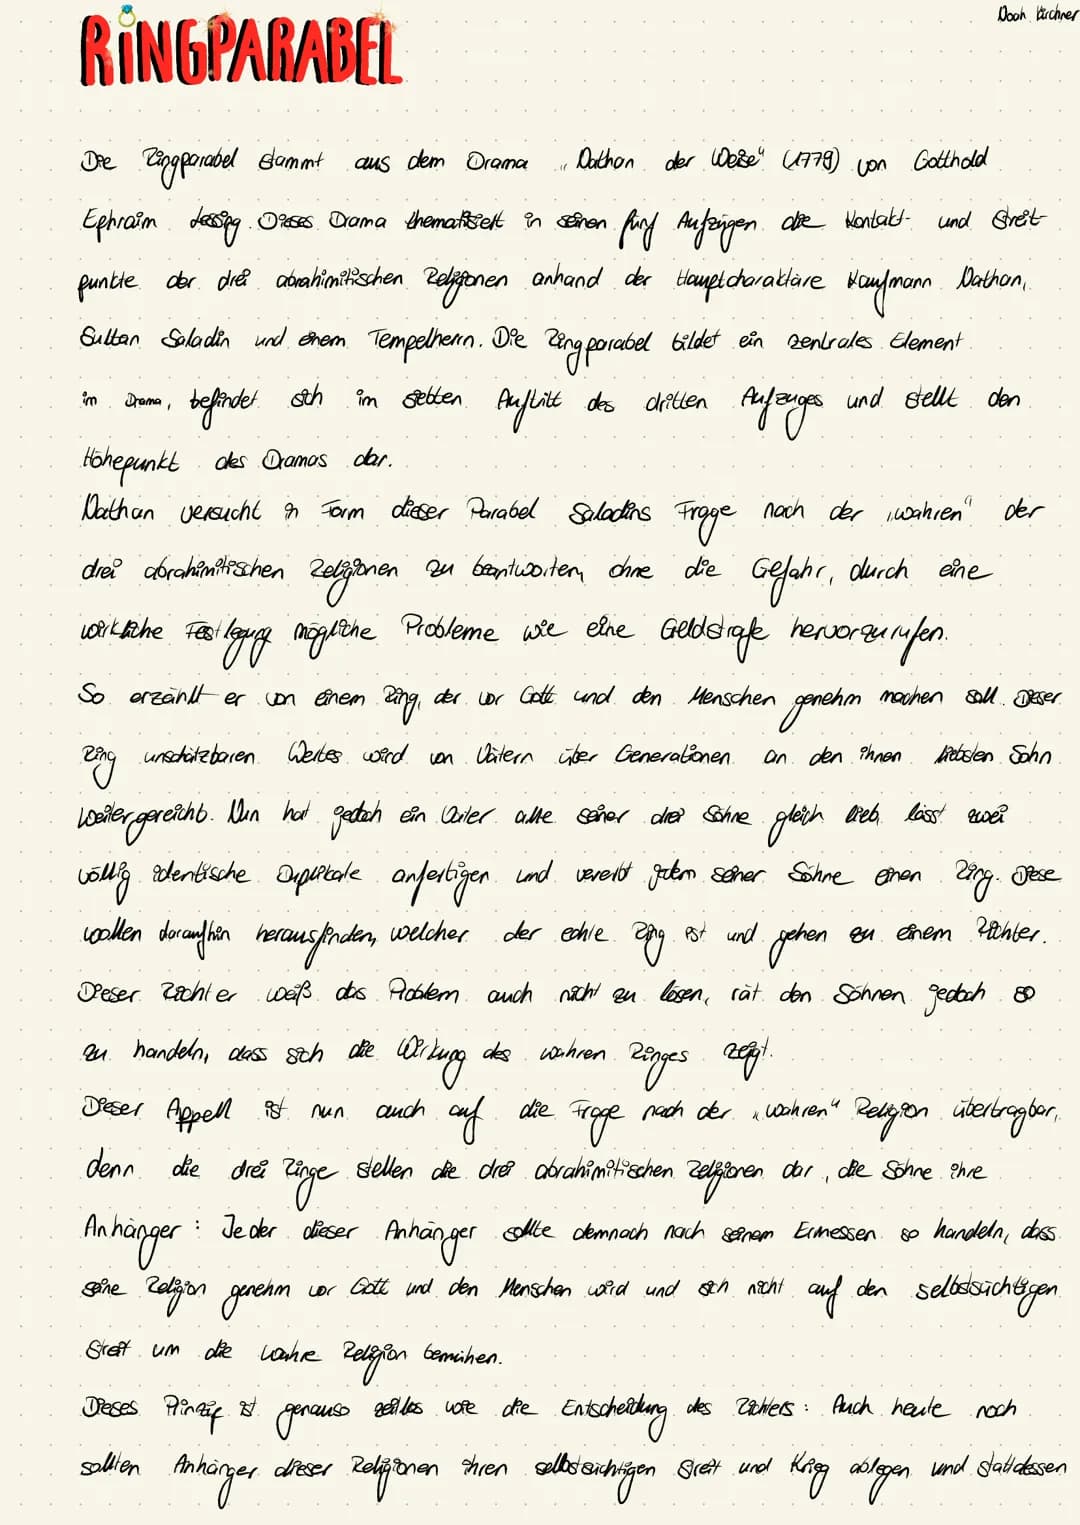 Noah Kirchner
RINGPARABEL
Die Ringparabel stammt aus dem Drama „Nathan der Weise“ (1779) von Gotthold
Ephraim Lessing. Dieses Drama thematisiert in seinen fünf Aufzügen die Kontakt- und Streit-
punkte der drei abrahimitischen Religionen anhand der Hauptcharaktäre Kaufmann Nathan,
Sultan Saladin und einem Tempelherrn. Die Ringparabel bildet ein zentrales Element
im Drama, befindet sich im siebten Auftritt des dritten Aufzuges und stellt den
Höhepunkt des Dramas dar.
Nathan versucht in Form dieser Parabel Saladins Frage nach der „wahren“ der
drei abrahimitischen Religionen zu beantworten, ohne die Gefahr, durch eine
wirkliche Festlegung mögliche Probleme wie eine Geldstrafe hervorzurufen.
So erzählt er von einem Ring, der vor Gott und den Menschen genehm machen soll. Dieser
Ring unschätzbaren Wertes wird von Vätern über Generationen an den ihnen liebsten Sohn
weitergereicht. Nun hat jedoch ein Vater alle seiner drei Söhne gleich lieb, lässt zwei
völlig identische Duplikate anfertigen und vererbt jedem seiner Söhne einen Ring. Diese
wollen daraufhin herausfinden, welcher der echte Ring ist und gehen zu einem Richter.
Dieser Richter weiß das Problem auch nicht zu lösen, rät den Söhnen jedoch so
zu handeln, dass sich die Wirkung des wahren Ringes zeigt.
Dieser Appell ist nun auch auf die Frage nach der „wahren“ Religion übertragbar,
denn die drei Ringe stellen die drei abrahimitischen Religionen dar, die Söhne ihre
Anhänger: Jeder dieser Anhänger sollte demnach nach seinem Ermessen so handeln, dass
seine Religion genehm vor Gott und den Menschen wird und sich nicht auf den selbstsüchtigen
Streit um die wahre Religion bemühen.
Dieses Prinzip ist genauso zeitlos wie die Entscheidung des Richters: Auch heute noch
sollten Anhänger dieser Religionen ihren selbstsüchtigen Streit und Krieg ablegen und stattdessen